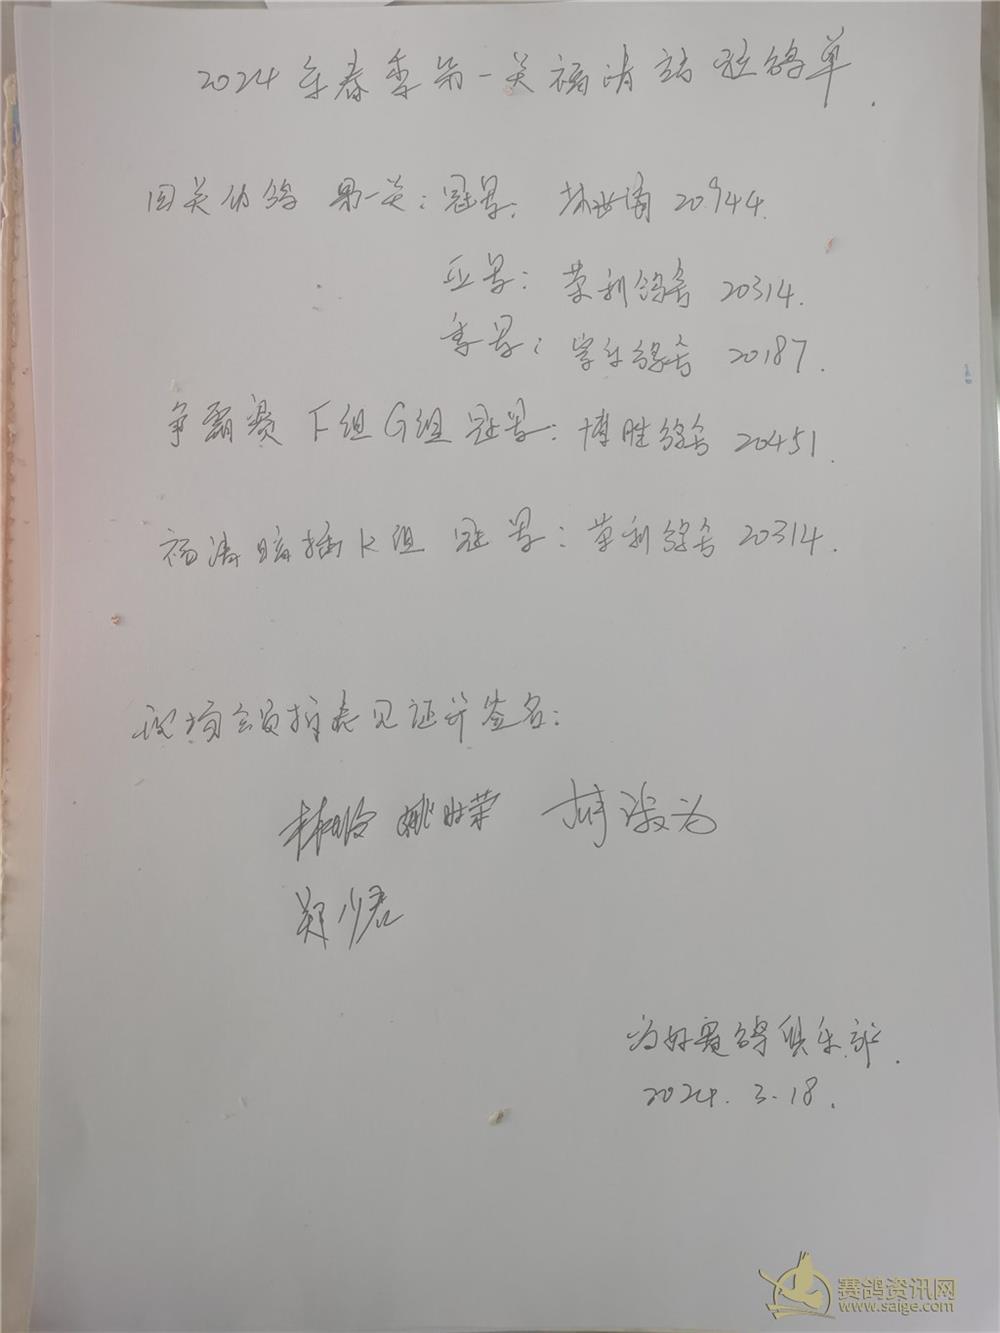 2024年春季第一关福清站验鸽单.
四关伯鸽 第一关:冠军: 林世清 20944.
亚军: 荣利鸽舍 20314.
季军: 学乐鸽舍 20187.
争霸赛 F组G组冠军: 博胜鸽舍 20451.
福清暗插K组 冠军: 荣利鸽舍 20314.
现场会员代表见证并签名:
林 姚 荣 林 为
郑少君
为好赛鸽俱乐部.
2024.3.18.
赛鸽资讯网
www.saige.com